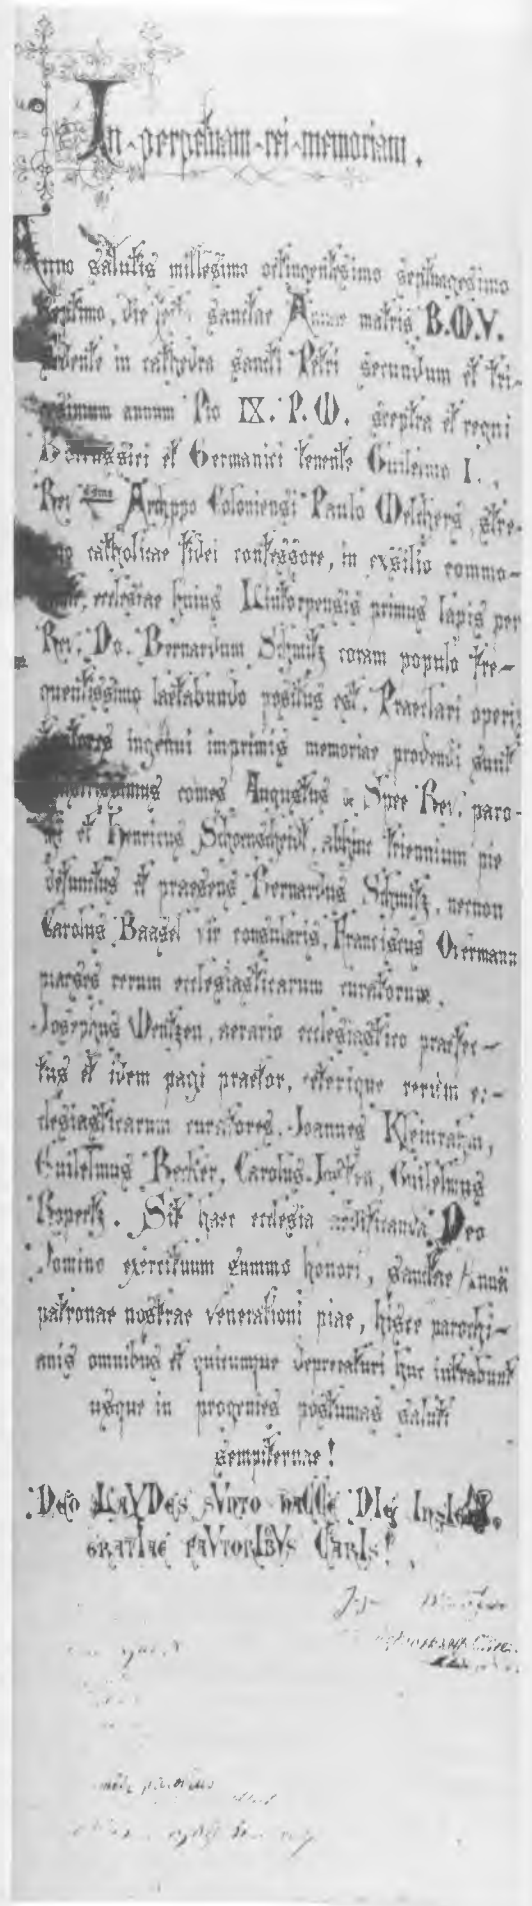 In perpetuam rei memoriam.
Anno salutis millesimo octingentesimo septuagesimo
septimo, die festo sanctae Annae matris B.M.V.
sedente in cathedra sancti Petri secundum et tri-
cesimum annum Pio IX. P.M. sceptra et regni
Borussici et Germanici tenente Guilelmo I.,
Rev Archppo Coloniensi Paulo Melchers, stre-
nuo catholicae fidei confessore, in exsilio commo-
ecclesiae huius Lintorpensis primus lapis per
Rev. Do. Bernardum Schmitz coram populo fre-
quentissimo laetabundo positus est. Praeclari operis
ingenui imprimis memoriae prodendi sunt
comes Augustus de Spee Rev. paro-
et Henricus Schomscheidt, abhinc triennium pie
defunctus et praesens Bernardus Schmitz, necnon
Carolus Baasel vir consularis, Franciscus Oiermann
piaeses rerum ecclesiasticarum curatorum.
Josephus Wentzen, aerario ecclesiastico praefec-
tus et idem pagi praetor, ceterique rerum ec-
clesiasticarum curatores, Joannes Kleinrahm,
Guilelmus Becker, Carolus Guilelmus
Ropertz. Sit haec ecclesia aedificanda Deo
Domino exercituum summo honori, sanctae Annä
patronae nostrae venerationi piae, hisce parochi-
anis omnibus et quicumque deprecaturi huc intrabunt
usque in progenies postumas saluti
sempiternae!
DEO LAVDES SVNTO HACCE DIE
GRATIAE FAVTORIBVS CARIS!